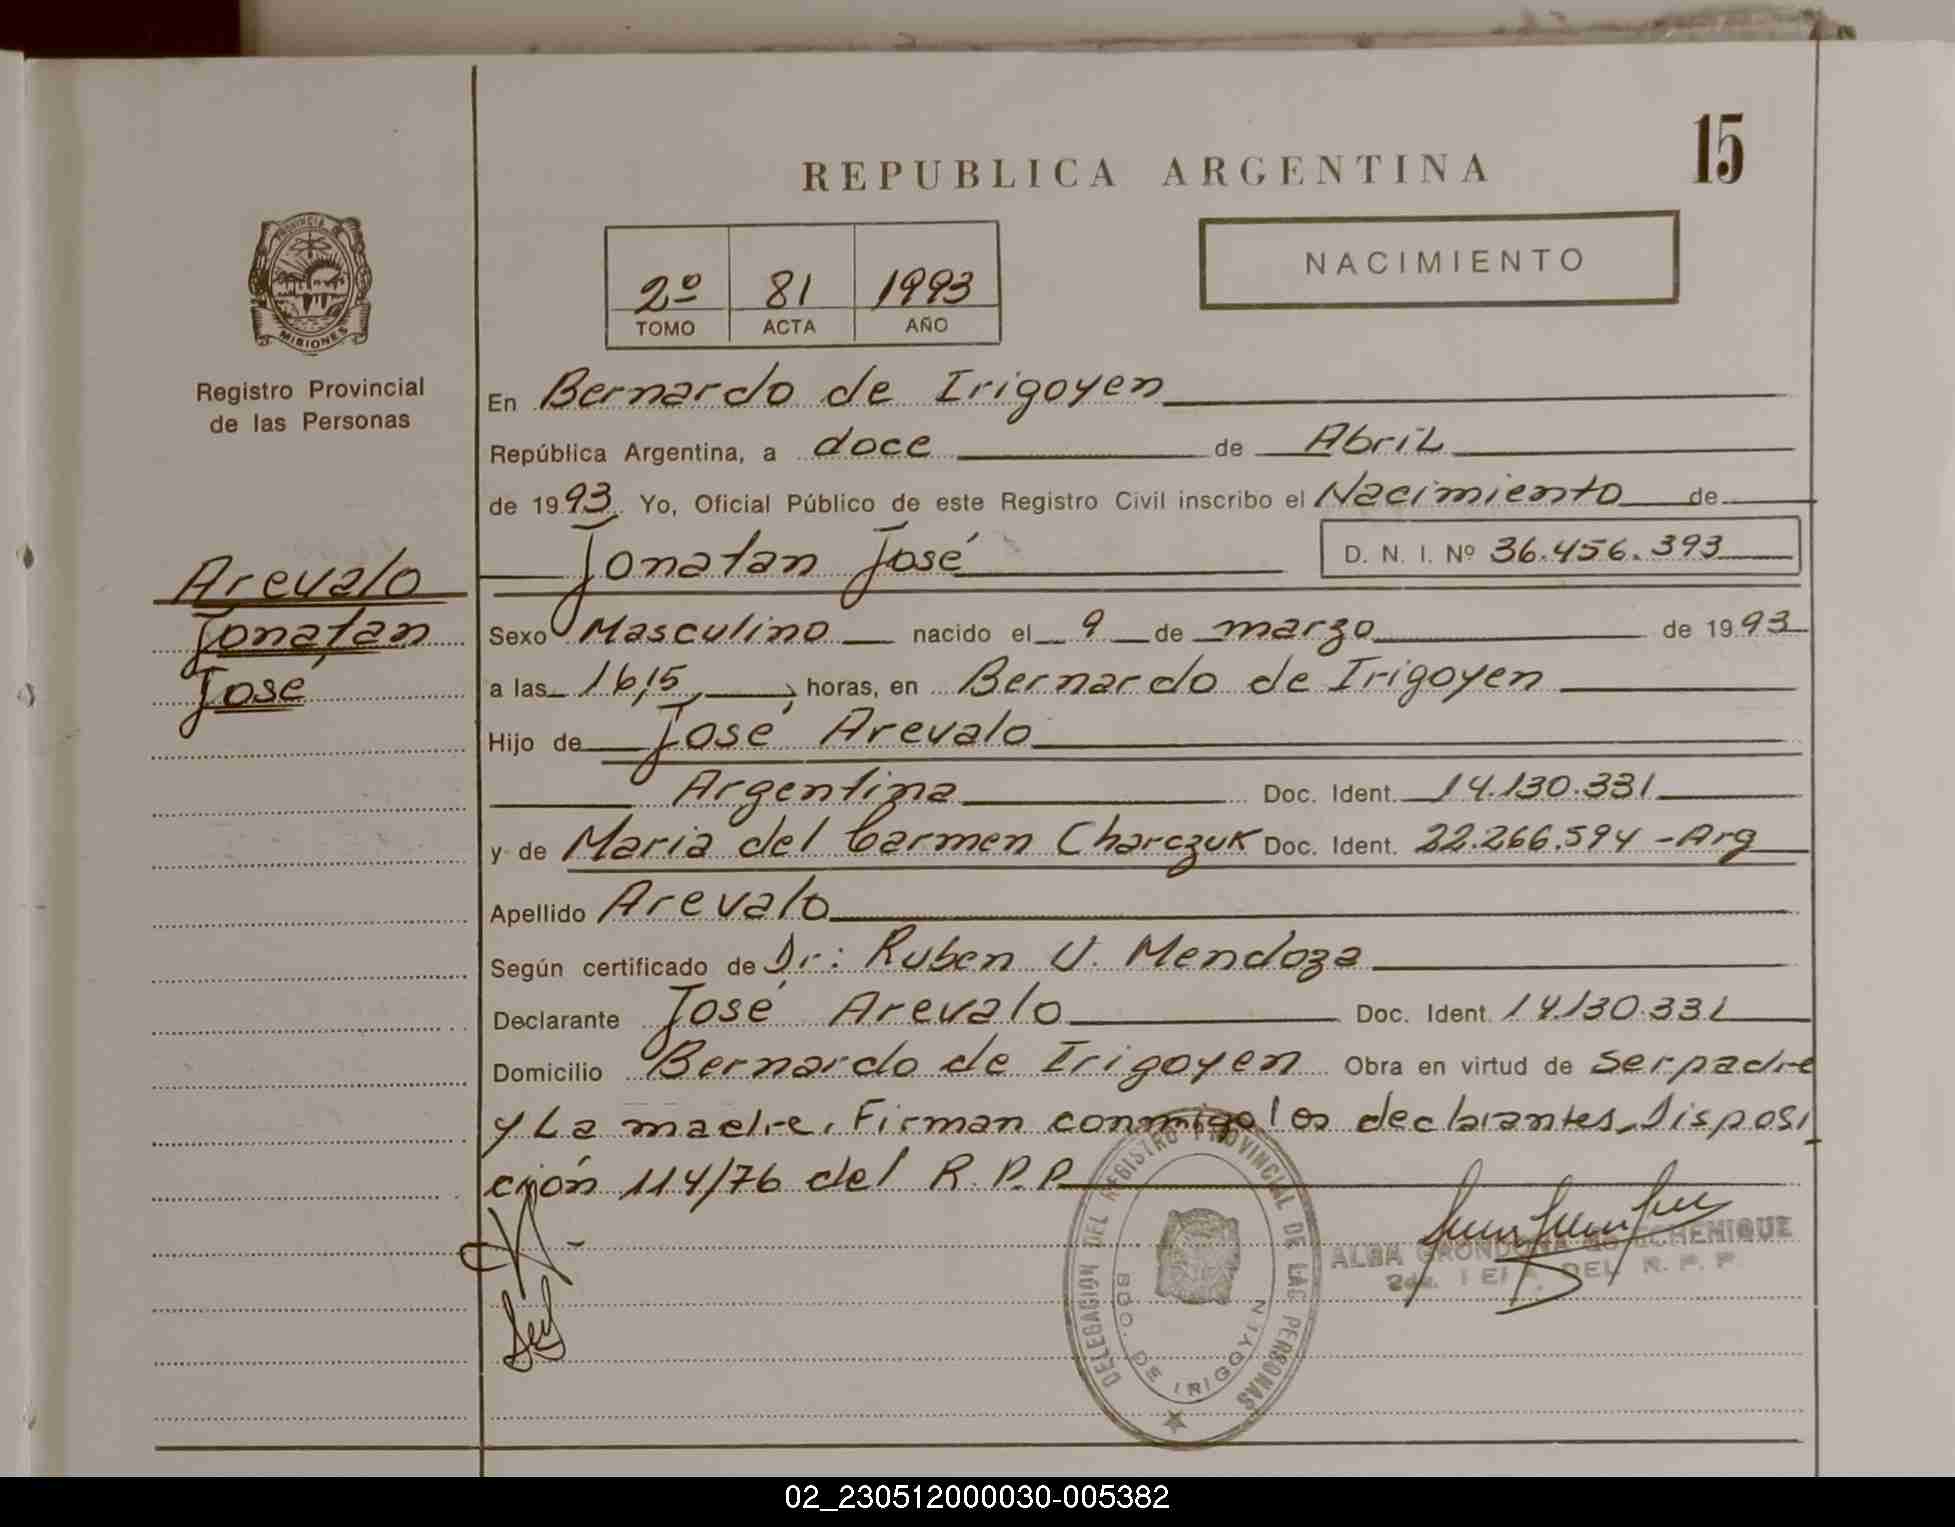 REPUBLICA ARGENTINA
15
PROVINCIA DE
MISIONES
Registro Provincial
de las Personas
2º 81 1993
TOMO ACTA AÑO
NACIMIENTO
En Bernardo de Irigoyen
República Argentina, a doce de Abril
de 1993 Yo, Oficial Público de este Registro Civil inscribo el Nacimiento de
Jonatan José D. N. I. Nº 36.456.393
Arevalo
Jonatan
José
Sexo Masculino nacido el 9 de marzo de 1993
a las 16,15 horas, en Bernardo de Irigoyen
Hijo de José Arevalo
Argentina Doc. Ident. 14.130.331
y de Maria del Carmen Charczuk Doc. Ident. 22.266.594 - Arg
Apellido Arevalo
Según certificado de Dr: Ruben V. Mendoza
Declarante José Arevalo Doc. Ident. 14.130.331
Domicilio Bernardo de Irigoyen Obra en virtud de ser padre
y La madre. Firman conmigo los declarantes. Disposi
ción 114/76 del R.P.P
DELEGACION DEL REGISTRO PROVINCIAL DE LAS PERSONAS
BDO. DE IRIGOYEN
ALBA GRONDONA ECHENIQUE
DEL R. P. P.
02_230512000030-005382